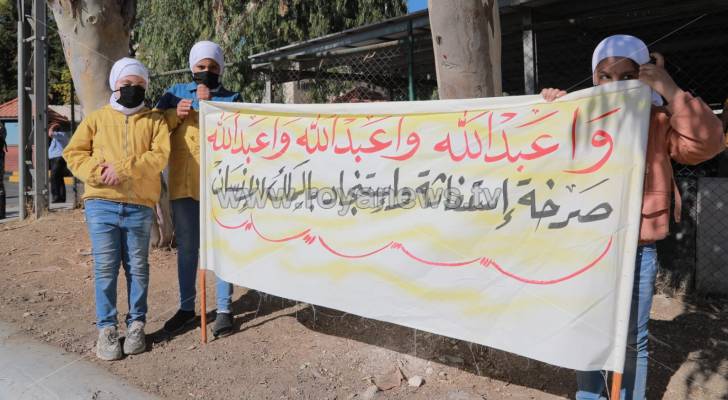 وا عبدالله وا عبدالله وا عبدالله
صرخة إستغاثة واستنجاد بالملك الإنسان
www.royanews.tv